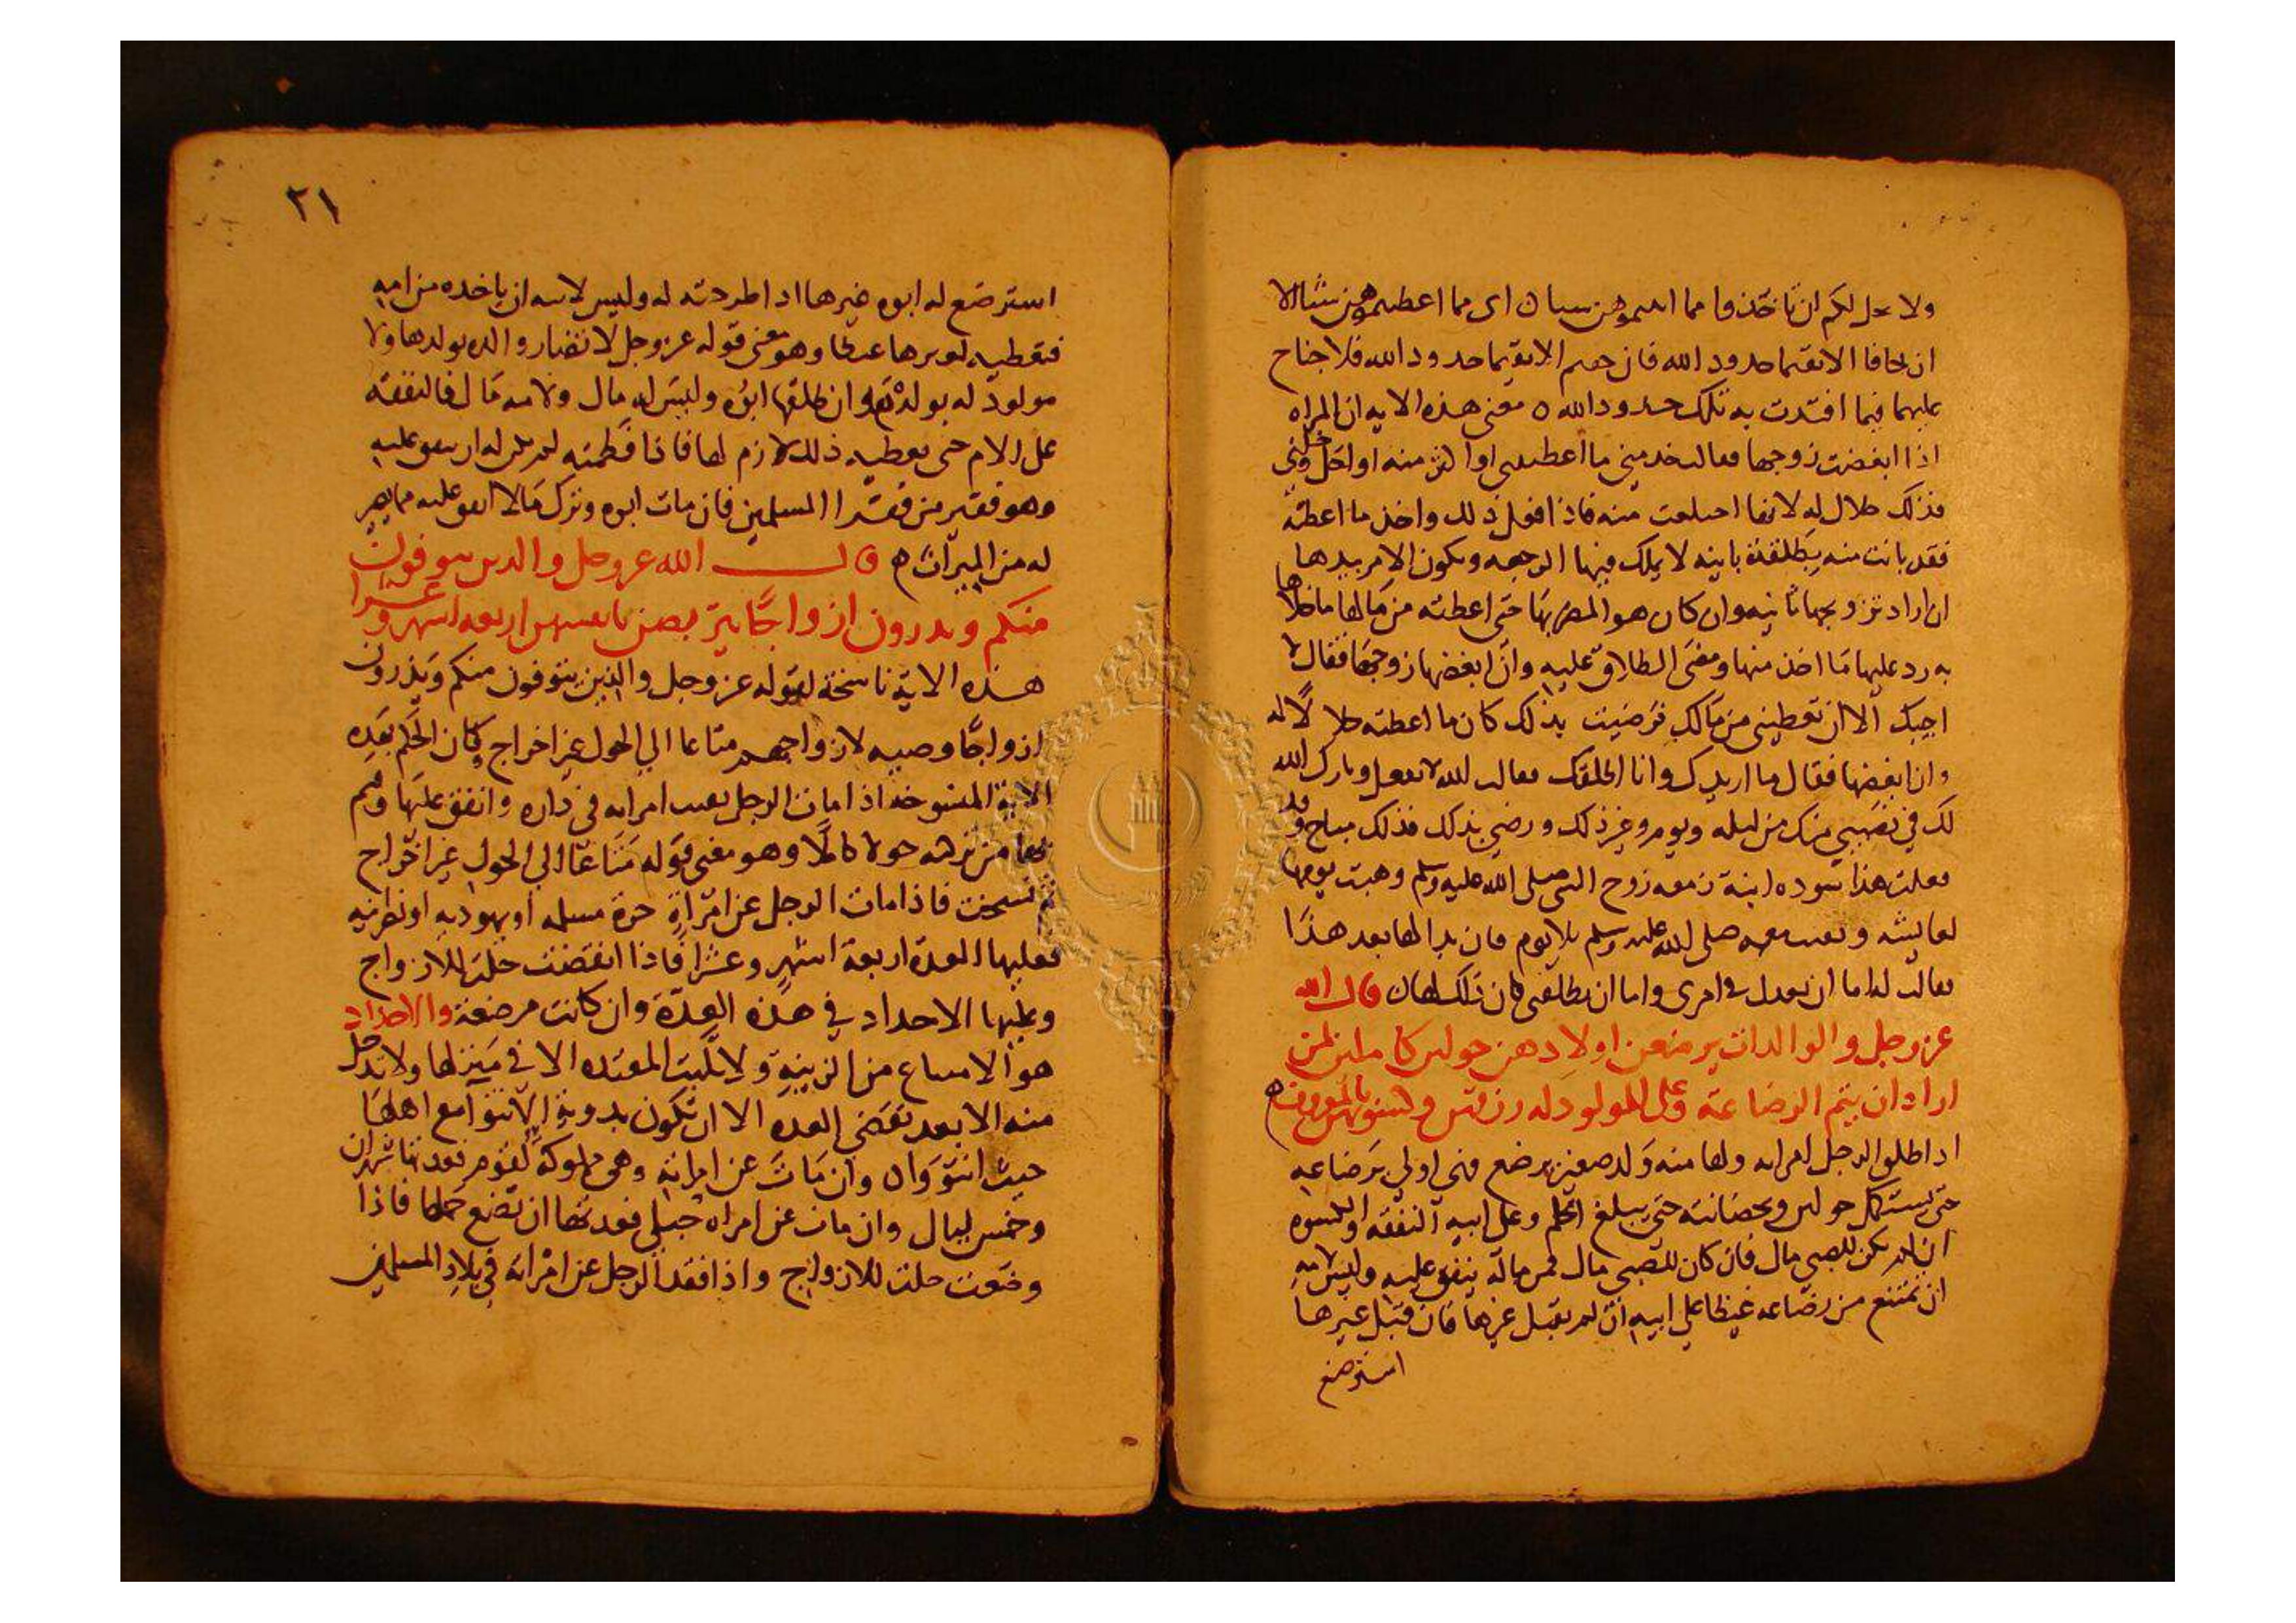 ولا يحل لكم ان تاخذوا مما اتيتموهن شيئا اى مما اعطيتموهن شئا الا
ان يخافا الا يقيما حدود الله فان خفتم الا يقيما حدود الله فلا جناح
عليهما فيما افتدت به تلك حدود الله ٥ معنى هذه الايه ان المراه
اذا ابغضت زوجها فقالت خد مني ما اعطيتنى او اكثر منه او اقل وخلني
فذلك حلال له لانها اختلعت منه فاذا فعل ذلك واخذ ما اعطته
فقد بانت منه بتطلقة باينه لا يملك فيها الرجعه ويكون الامر بيدها
ان اراد تزويجها ثانيه وان كان هو المضر بها حتى اعطته من مالها ماخلاها
به رد عليها ما اخذ منها ومضى الطلاق عليه وان ابغضها زوجها فقال لا
احبك الا ان تعطيني من مالك فرضيت بذلك كان ما اعطته حلالا له
وان ابغضها فقال ما اريدك وانا اطلقك فقالت لله لا تفعل وبارك الله
لك في نصيبي منك من ليله ويوم وغير ذلك ورضي بذلك فذلك مباح وقد
فعلت هذا سوده ابنة زمعه زوج النبي صلى الله عليه وسلم وهبت يومها
لعايشه وبقيت معه صلى الله عليه وسلم بلا يوم فان بدا لها بعد هذا
فقالت له اما ان تعدل في امرى واما ان تطلقني كان ذلك لها ٥ قال الله
عز وجل والوالدات يرضعن اولادهن حولين كاملين لمن
اراد ان يتم الرضاعة وعلى المولود له رزقهن وكسوتهن بالمعروف ه
اذا طلق الرجل امراته ولها منه ولد صغير يرضع فهى اولي برضاعه
حتى يستكمل حولين وبحضانته حتى يبلغ الحلم وعلى ابيه النفقه والكسوه
ان لم يكن للصبي مال فان كان للصبي مال فمن ماله ينفق عليه وليس لامه
ان تمتنع من رضاعه غيظا على ابيه ان لم يقبل غيرها فان قبل غيرها
استرضع
٢١
استرضع له ابوه غيرها اذا طرحته له وليس لابيه ان ياخده من امه
فيعطيه لغيرها غيظا وهو معنى قوله عز وجل لا تضار والده بولدها ولا
مولود له بولده وان طلقها ابوه وليس له مال ولامه مال فالنفقه
على الام حتى تعطيه ذلك لازم لها فاذا فطمته لم يكن له ان ينفق عليه
وهو فقير من فقرا المسلمين فان مات ابوه وترك مالا انفق عليه مما يصير
له من الميراث ه قال الله عز وجل والدين يتوفون
منكم ويدرون ازواجًا يتربصن بانفسهن اربعه اشهر وعشرا
هذه الاية ناسخة لقوله عز وجل والذين يتوفون منكم ويذرون
ازواجًا وصيه لازواجهم متاعا الي الحول غير اخراج وكان الحكم بعده
الاية المنسوخه اذا مات الرجل بقيت امراته في داره وانفق عليها وليها
من تركته حولا كاملًا وهو معنى قوله مَتَاعًا الي الحول غير اخراج
ثم نسخت فاذا مات الرجل عن امراة حرة مسلمه او يهوديه او نصرانيه
فعليها العدة اربعة اشهر وعشرا فاذا انقضت حلت للازواج
وعليها الاحداد في هذه العدة وان كانت مرضعة والاحداد
هو الامتناع من الزينة ولا تبت المعتده الا في منزلها ولا تدخل
منه الا بعد تقضي العده الا ان تكون بدوية تنتوا مع اهلها
حيث انتووا ٥ وان مات عن امراته وهى مملوكة لقوم فعدتها شهران
وخمس ليال وان مات عن امراه حبلى فعدتها ان تضع حملها فاذا
وضعت حلت للازواج واذا فقد الرجل عن امراته في بلاد المسلمين